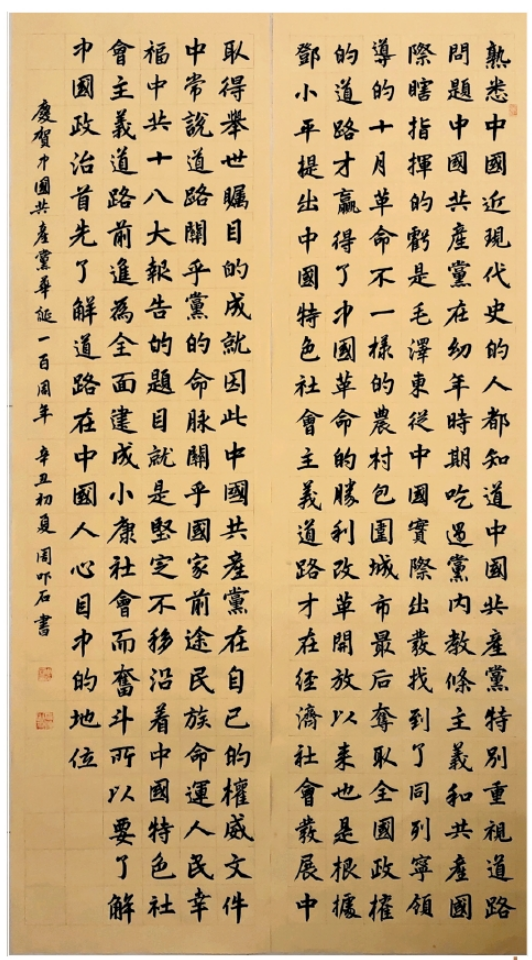 熟悉中國近現代史的人都知道中國共產黨特別重視道路
問題中國共產黨在幼年時期吃過黨內教條主義和共產國
際瞎指揮的虧是毛澤東從中國實際出發找到了同列寧領
導的十月革命不一樣的農村包圍城市最后奪取全國政權
的道路才贏得了中國革命的勝利改革開放以来也是根據
鄧小平提出中國特色社會主義道路才在經濟社會發展中
取得舉世矚目的成就因此中國共產黨在自己的權威文件
中常説道路關乎黨的命脉關乎國家前途民族命運人民幸
福中共十八大報告的題目就是堅定不移沿着中國特色社
會主義道路前進為全面建成小康社會而奮斗所以要了解
中國政治首先了解道路在中國人心目中的地位
慶賀中國共產黨華誕一百周年 辛丑初夏 周叩石書